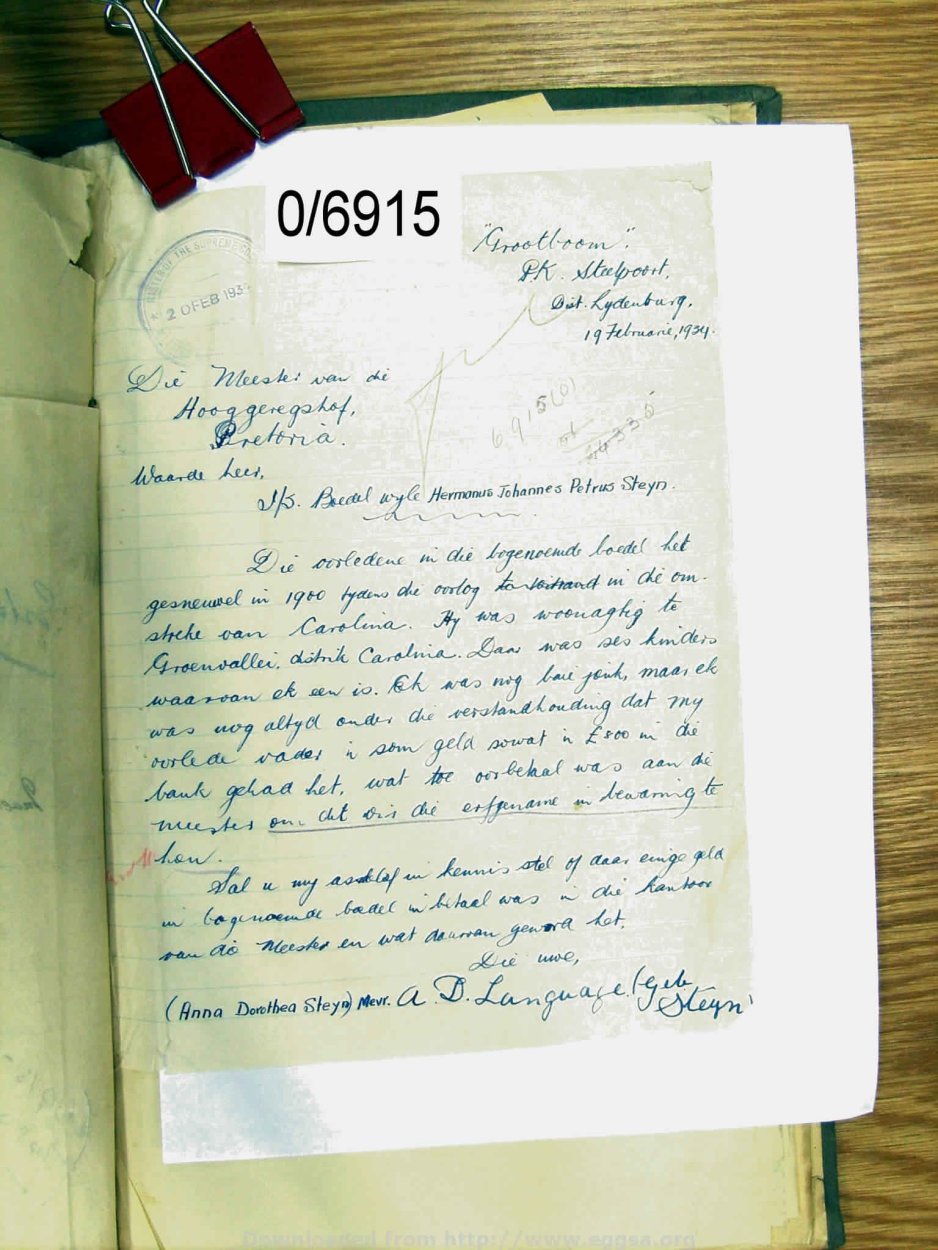 0/6915
"Grootboom".
P.K. Steelpoort,
Dist. Lydenburg,
19 Februarie, 1934.
MASTER OF THE SUPREME
* 20 FEB 193
Die Meester van die
Hooggeregshof,
Pretoria.
6915(0)
Waarde Heer,
I/S. Boedel wyle Hermanus Johannes Petrus Steyn.
Die oorledene in die bogenoemde boedel het
gesneuwel in 1900 tydens die oorlog in die om-
streke van Carolina. Hy was woonagtig te
Groenvallei, distrik Carolina. Daar was ses kinders
waarvan ek een is. Ek was nog baie jonk, maar ek
was nog altyd onder die verstandhouding dat my
oorlede vader 'n som geld sowat 'n £800 in die
bank gehad het, wat toe oorbetaal was aan die
meester om dit vir die erfgename in bewaring te
hou.
Sal u my asseblief in kennis stel of daar enige geld
in bogenoemde boedel in betaal was in die kantoor
van die Meester en wat daarvan geword het.
Die uwe,
(Anna Dorothea Steyn) Mevr. A. D. Language (geb
Steyn)
Downloaded from http://www.eggsa.org